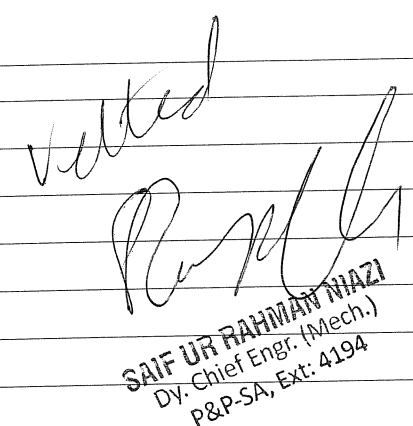 vetted
SAIF UR RAHMAN NIAZI
Dy. Chief Engr. (Mech.)
P&P-SA, Ext: 4194